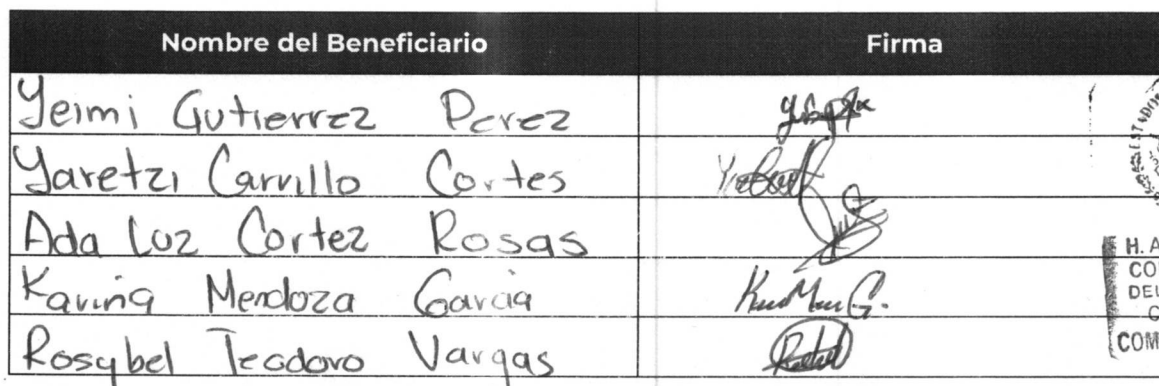 Nombre del Beneficiario Firma
Yeimi Gutierrez Perez
Yaretzi Carrillo Cortes
Ada Luz Cortez Rosas
Karina Mendoza Garcia
Rosybel Teodoro Vargas
H. A
CO
DEL
C
COM